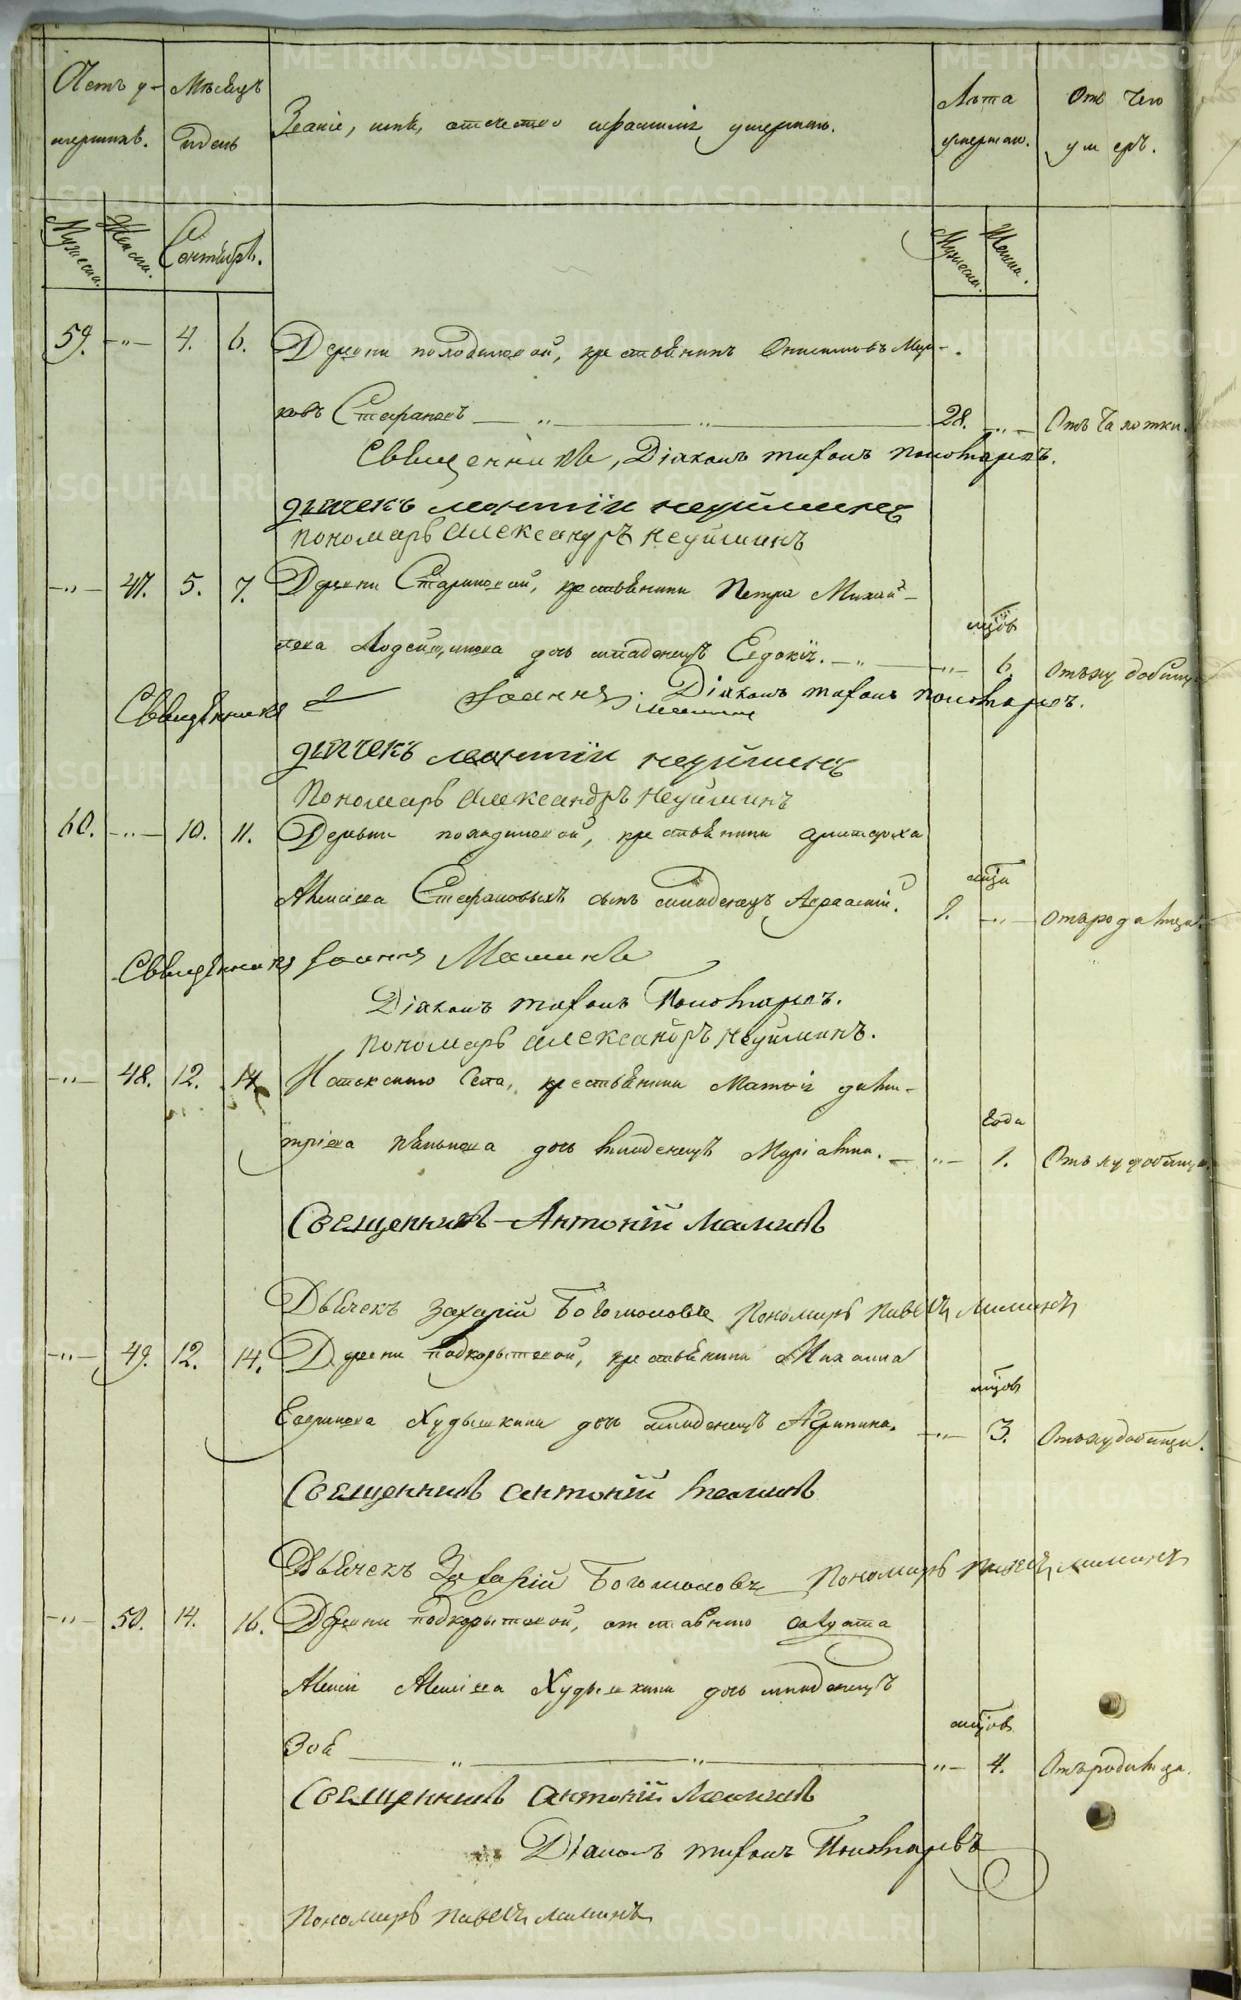 Счетъ у-
мершихъ.
Мѣсяцъ
и день
Званіе, имя, отчество и фамилія умершихъ.
Лѣта
умершаго.
Отъ чего
умеръ.
Мужеска.
Женска.
Сентябрь.
Мужеска.
Женска.
59. -"- 4. 6. Деревни крестьянинъ Онисимовъ
Стефановъ 28. -"- Отъ чахотки.
Священникъ, Діаконъ Трифонъ Пономаревъ.
Дьячекъ Леонтій Неуйминъ
Пономарь Александръ Неуйминъ
-"- 47. 5. 7. Деревни крестьянина Петра Михай-
лова дочь младенецъ Евдокія. -"- мцовъ 6. Отъ худобищи
Священникъ Іоаннъ Маминъ Діаконъ Трифонъ Пономаревъ.
Дьячекъ Леонтій Неуйминъ
Пономарь Александръ Неуйминъ
60. -"- 10. 11. Деревни крестьянина Аристарха
Алексѣева Стефановыхъ сынъ младенецъ мца
-"- Отъ родимца.
Священникъ Іоаннъ Маминъ
Діаконъ Трифонъ Пономаревъ.
Пономарь Александръ Неуйминъ.
-"- 48. 12. 14. села, крестьянина Матвѣя Дими-
тріева дочь младенецъ Маріамна. -"- года 1. Отъ худобищи.
Священникъ Антоній Маминъ
Дьячекъ Захарій Богомоловъ Пономарь Павелъ Маминъ
-"- 49. 12. 14. Деревни Подкорытовой, крестьянина Михаила
Худышкина дочь младенецъ Агрипина. -"- мцовъ 3. Отъ худобищи.
Священникъ Антоній Маминъ
Дьячекъ Захарій Богомоловъ Пономарь Павелъ Маминъ
-"- 50. 14. 16. Деревни Подкорытовой, отставнаго солдата
Алексѣя Алексѣева Худышкина дочь младенецъ
Зоя -"- мцовъ 4. Отъ родимца.
Священникъ Антоній Маминъ
Діаконъ Трифонъ Пономаревъ
Пономарь Павелъ Маминъ
METRIKI.GASO-URAL.RU